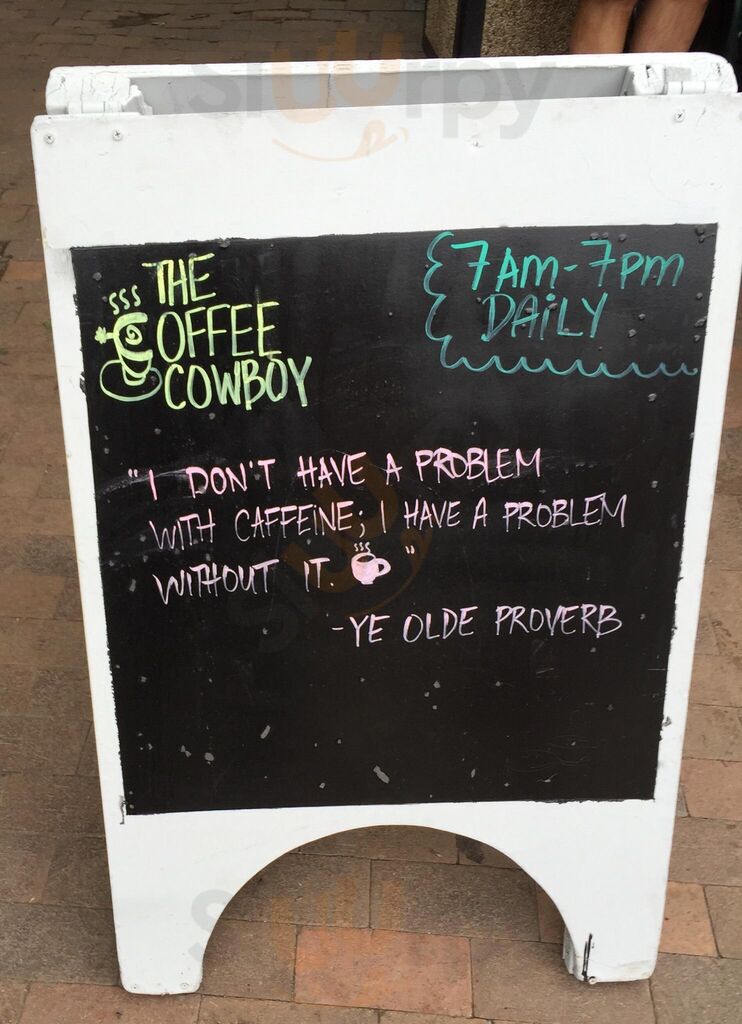 Sluurpy
THE
COFFEE
COWBOY
7AM-7PM
DAILY
"I DON'T HAVE A PROBLEM
WITH CAFFEINE; I HAVE A PROBLEM
WITHOUT IT. "
-YE OLDE PROVERB